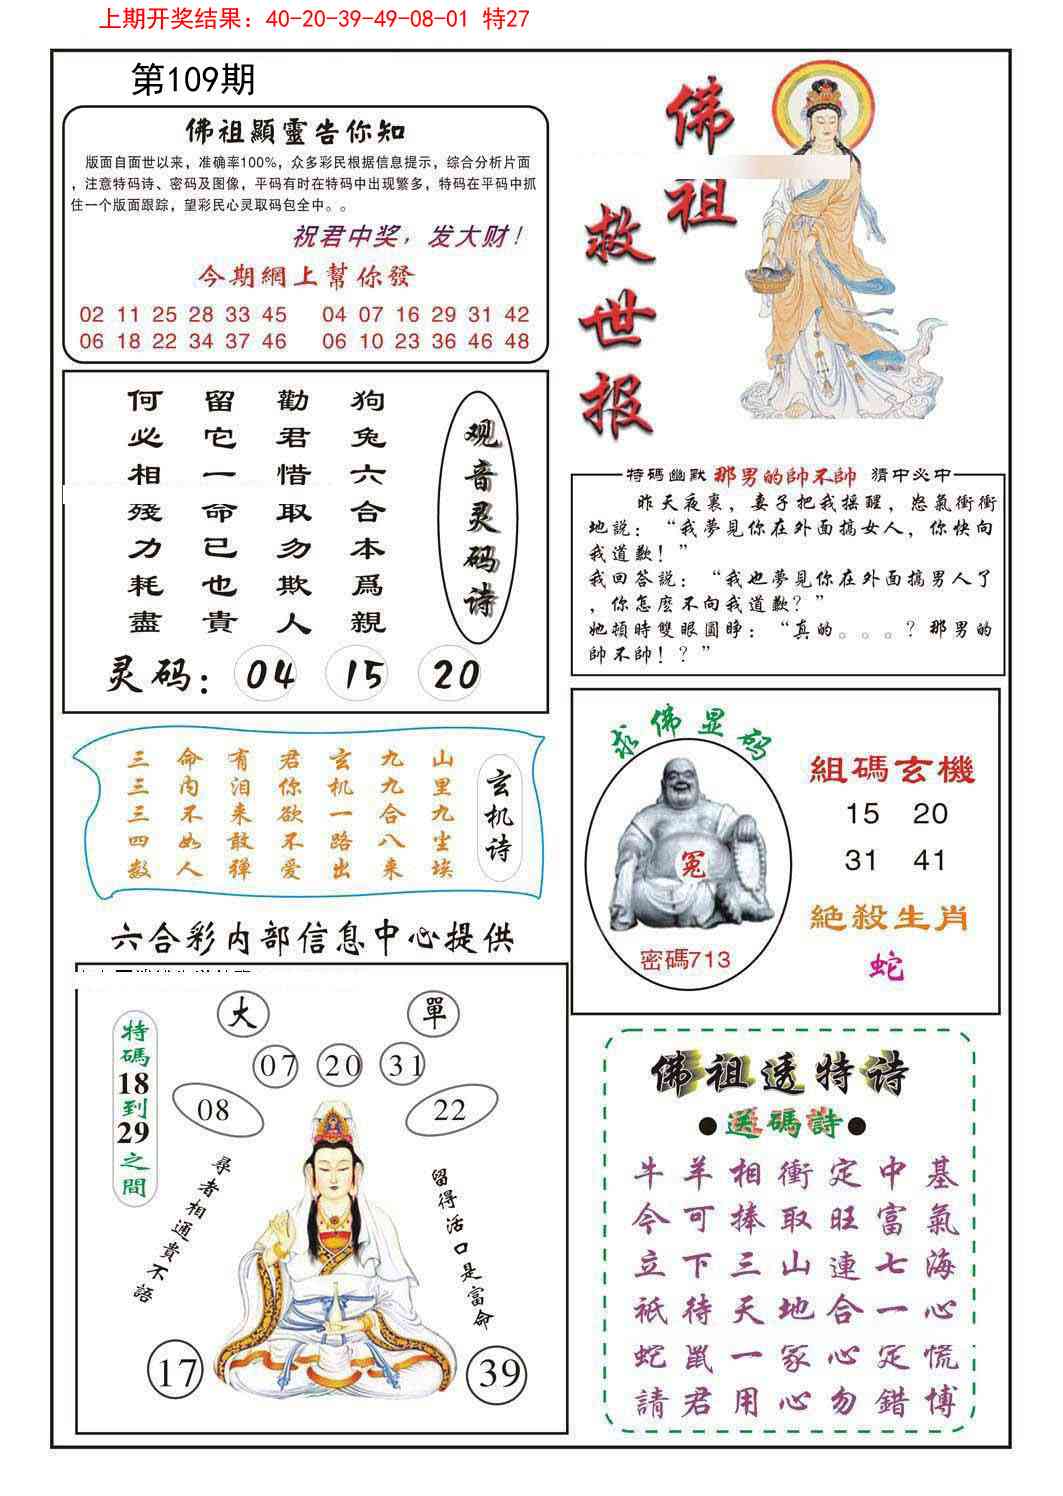 上期开奖结果：40-20-39-49-08-01 特27
第109期
佛祖顯靈告你知
版面自面世以来，准确率100%，众多彩民根据信息提示，综合分析片面
，注意特码诗、密码及图像，平码有时在特码中出现繁多，特码在平码中抓
住一个版面跟踪，望彩民心灵取码包全中。。
祝君中奖，发大财！
今期網上幫你發
02 11 25 28 33 45 04 07 16 29 31 42
06 18 22 34 37 46 06 10 23 36 46 48
佛祖救世报
观音灵码诗
狗兔六合本爲親
勸君惜取勿欺人
留它一命已也貴
何必相殘力耗盡
灵码：04 15 20
特碼幽默 那男的帥不帥 猜中必中
昨天夜裏，妻子把我摇醒，怒氣衝衝
地説：“我夢見你在外面搞女人，你快向
我道歉！”
我回答説：“我也夢見你在外面搞男人了
，你怎麽不向我道歉？”
她頓時雙眼圓睁：“真的。。。？那男的
帥不帥！？”
玄机诗
山里九尘埃
九九合八来
玄机一路出
君你欲不爱
有泪来敢弹
命内不如人
三三三四数
求佛显码
冤
密碼713
組碼玄機
15 20
31 41
絶殺生肖
蛇
六合彩内部信息中心提供
大 單
07 20 31
08 22
特碼18到29之間
尋者相通貴不語
留得活口是富命
17 39
佛祖透特诗
●送碼詩●
牛羊相衝定中基
今可捧取旺富氣
立下三山連七海
祇待天地合一心
蛇鼠一家心定慌
請君用心勿錯博